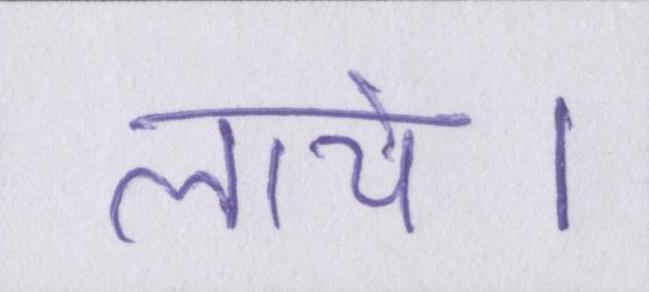 लाये।